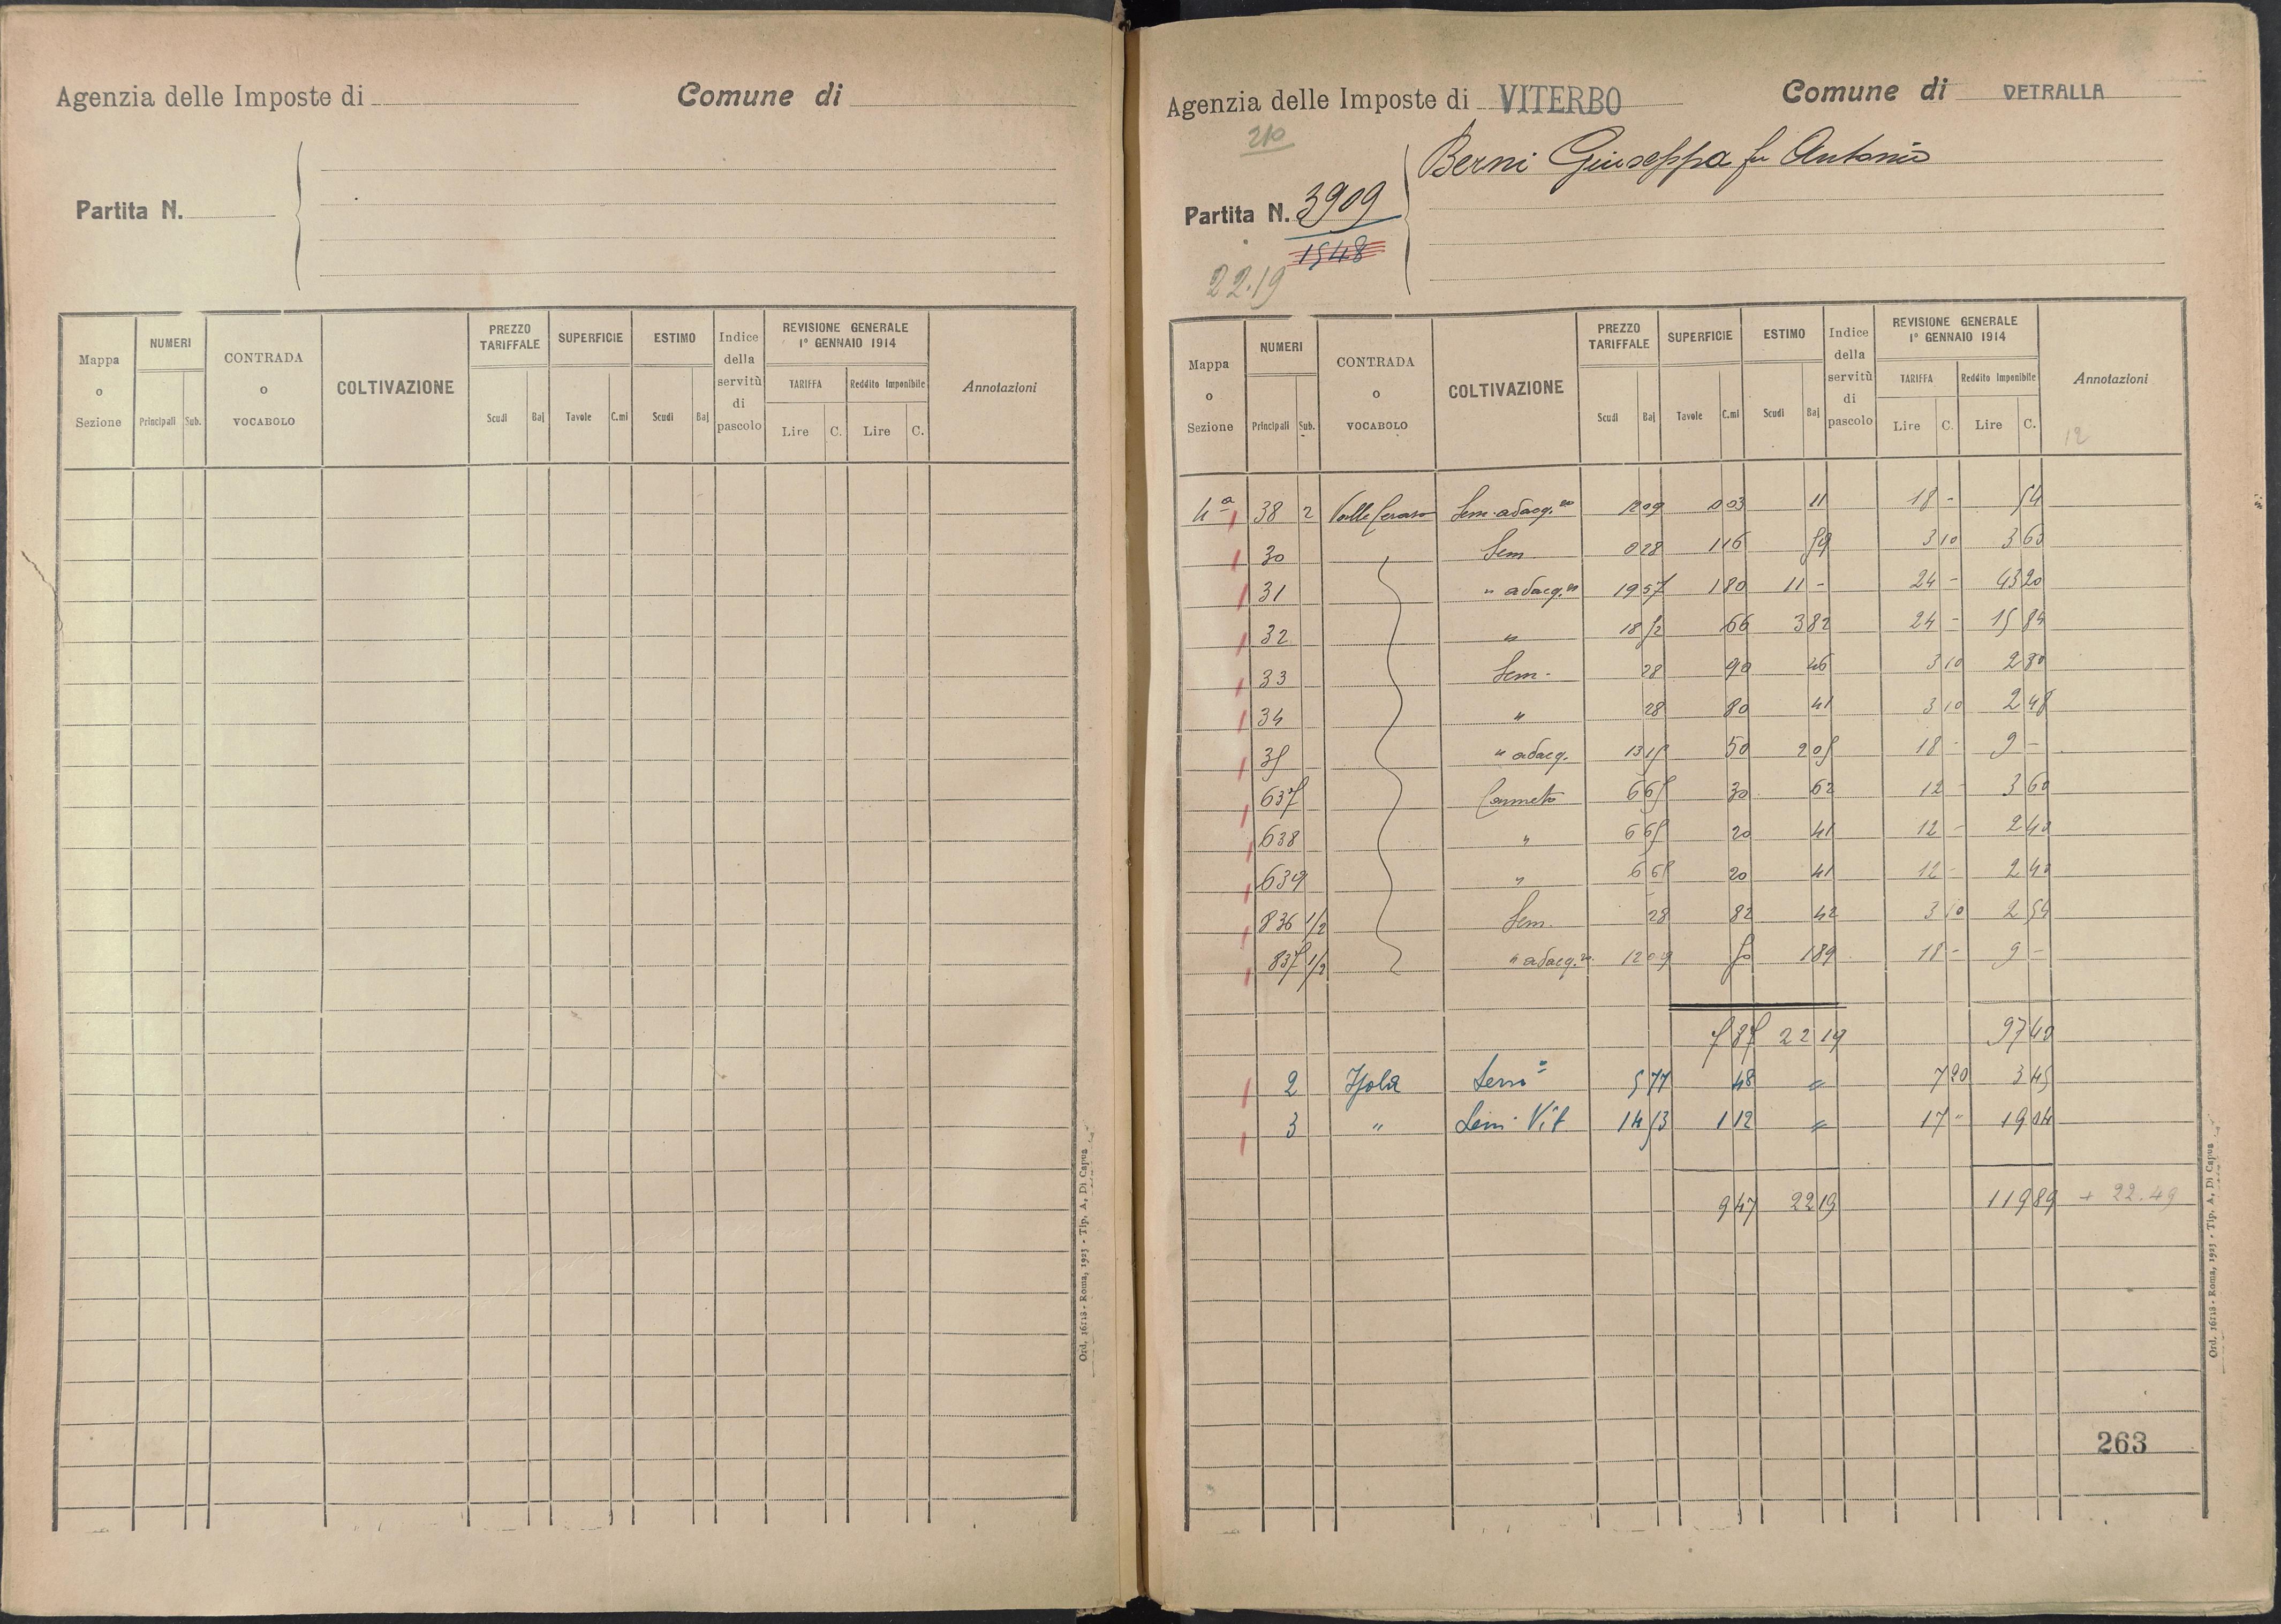 Agenzia delle Imposte di Comune di
Partita N.
Mappa o Sezione NUMERI Principali Sub. CONTRADA o VOCABOLO COLTIVAZIONE PREZZO TARIFFALE Scudi Baj SUPERFICIE Tavole C.mi ESTIMO Scudi Baj Indice della servitù di pascolo REVISIONE GENERALE 1° GENNAIO 1914 TARIFFA Lire C. Reddito Imponibile Lire C. Annotazioni
Ord. 16118 - Roma, 1923 - Tip. A. Di Capua
Agenzia delle Imposte di VITERBO Comune di VETRALLA
210
Berni Giuseppa fu Antonio
Partita N. 3909
1548
22.19
Mappa o Sezione NUMERI Principali Sub. CONTRADA o VOCABOLO COLTIVAZIONE PREZZO TARIFFALE Scudi Baj SUPERFICIE Tavole C.mi ESTIMO Scudi Baj Indice della servitù di pascolo REVISIONE GENERALE 1° GENNAIO 1914 TARIFFA Lire C. Reddito Imponibile Lire C. Annotazioni
12
4ª 38 2 Valle Cerasa Sem. adacq.º 12 09 0 03 11 18 - 54
30 Sem 0 28 1 16 59 3 10 3 60
31 " adacq.º 19 57 1 80 11 - 24 - 43 20
32 " 18 52 66 3 82 24 - 15 84
33 Sem. 28 90 46 3 10 2 80
34 " 28 80 41 3 10 2 48
35 " adacq. 13 15 50 2 05 18 - 9 -
637 Canneto 6 65 30 62 12 - 3 60
638 " 6 65 20 41 12 - 2 40
639 " 6 65 20 41 12 - 2 40
836 1/2 Sem. 28 82 42 3 10 2 54
837 1/2 " adacq.º 12 09 50 1 89 18 - 9 -
7 87 22 19 97 40
2 Isola Sem.º 5 77 48 " 7 20 3 45
3 " Sem. Vit 14 53 1 12 " 17 " 19 04
9 47 22 19 119 89 + 22.49
263
Ord. 16118 - Roma, 1923 - Tip. A. Di Capua